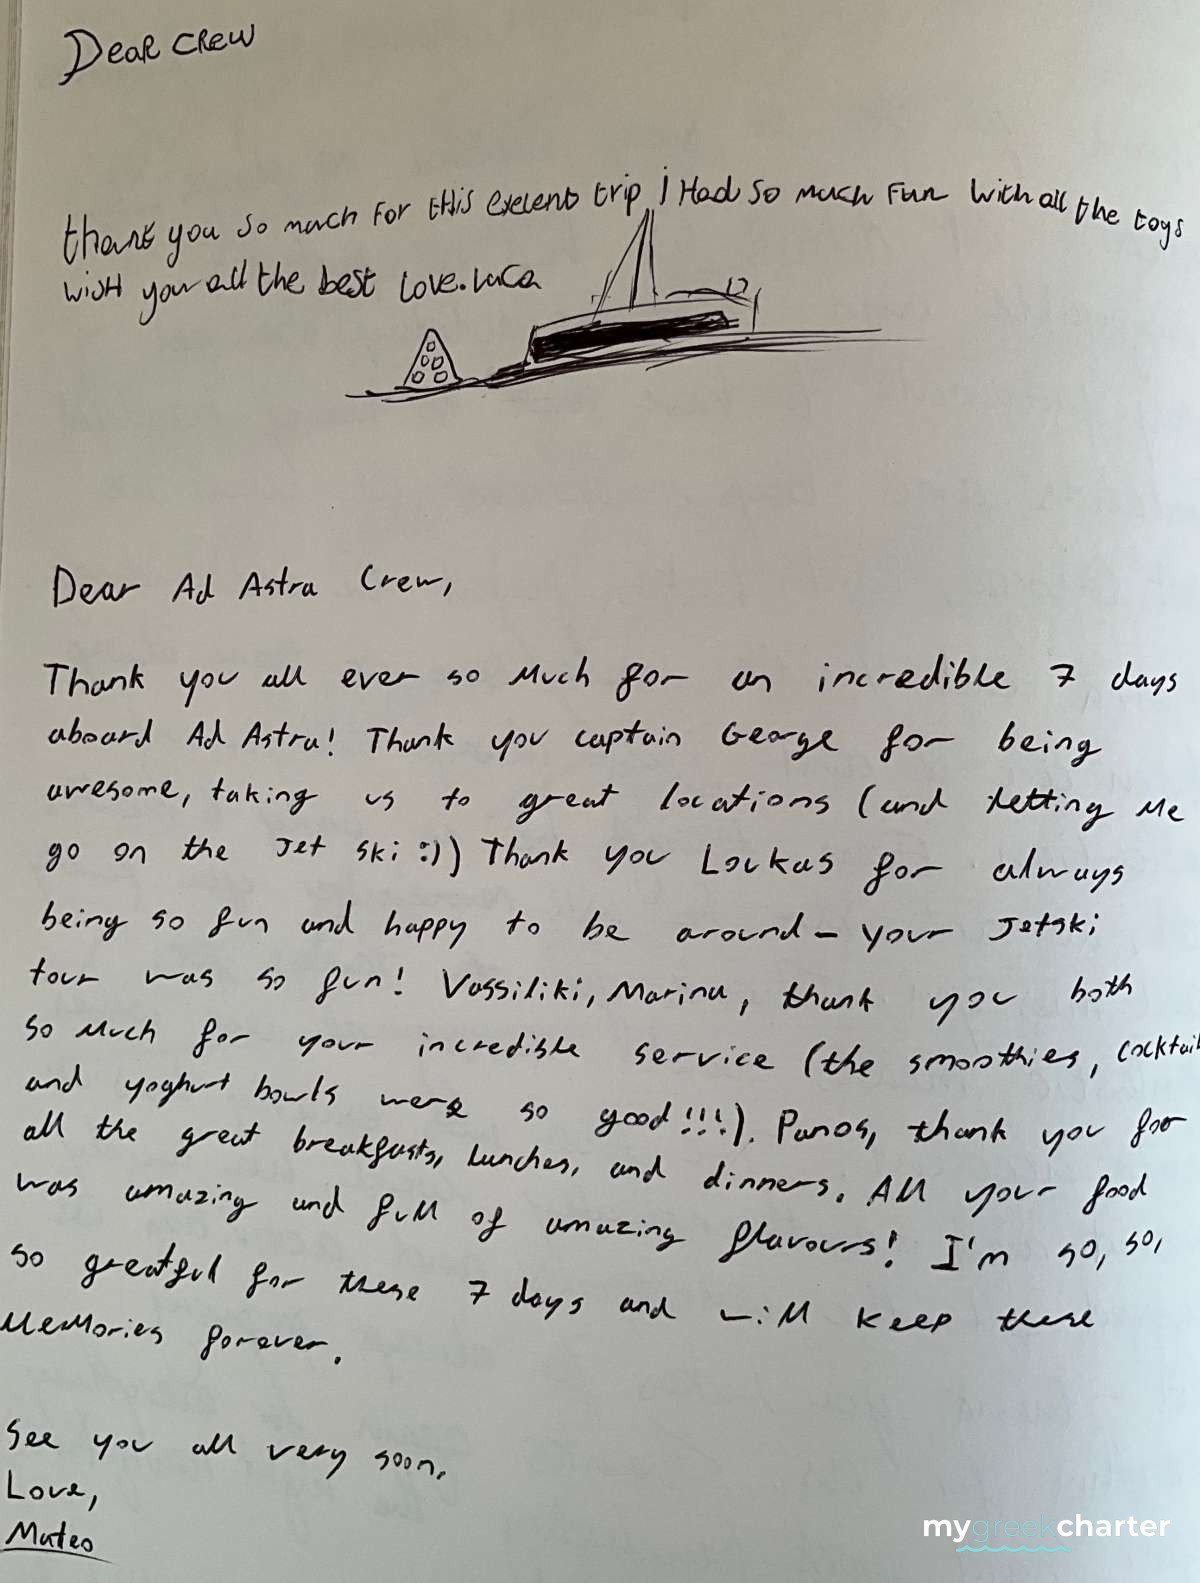 Dear Crew
thank you so much for this exelent trip i Had so much Fun with all the toys
wish you all the best Love. Luca
Dear Ad Astra Crew,
Thank you all ever so much for an incredible 7 days
aboard Ad Astra! Thank you captain George for being
awesome, taking us to great locations (and letting me
go on the Jet ski :)) Thank you Loukas for always
being so fun and happy to be around - your Jetski
tour was so fun! Vassiliki, Marina, thank you both
so much for your incredible service (the smoothies, cocktail
and yoghurt bowls were so good!!!). Panos, thank you for
all the great breakfasts, lunches, and dinners. All your food
was amazing and full of amazing flavours! I'm so, so,
so greatful for these 7 days and will keep these
memories forever.
See you all very soon.
Love,
Mateo
mygreekcharter